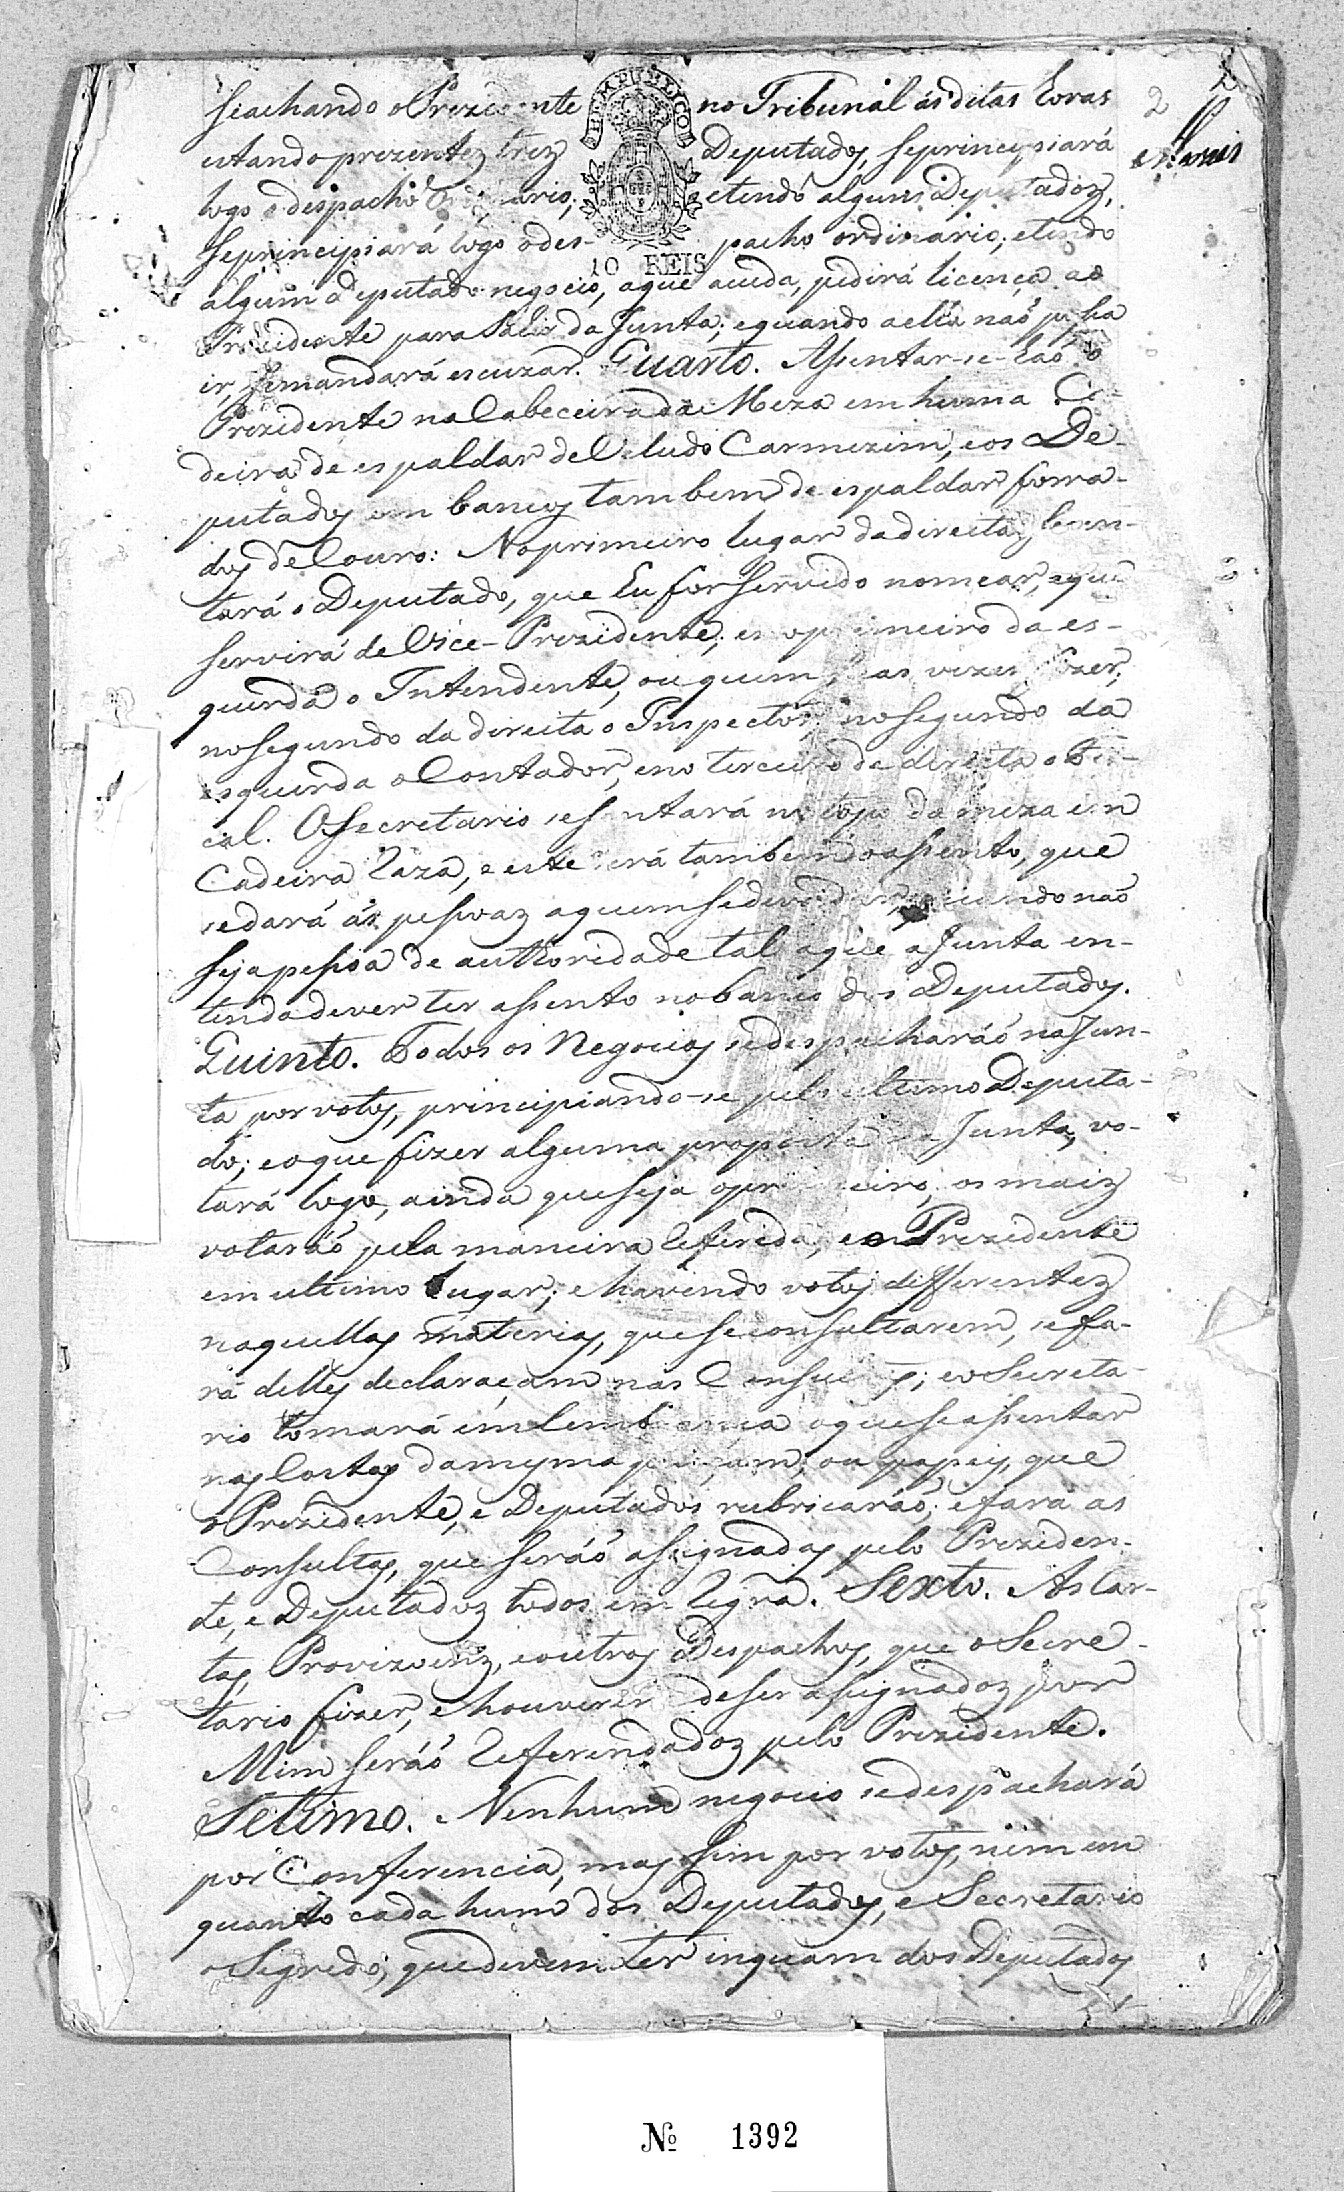 2
BEM PUBLICO
10 REIS
2
seachando o Prezidente no Tribunal ás ditas horas
estando prezentez trez Deputados, seprincipiará
logo o despacho Ordinario; etendo alguns Deputadoz,
seprincipiará logo odes- pacho ordinario; etendo
algum Deputado negocio, aque acuda, pedirá licença ao
Prezidente para Sahir da Junta; equando aella naõ possa
ir, semandará escuzar. Quarto. Assentar-se-haõ o
Prezidente na Cabeceira da Meza em huma Ca-
deira de espaldar de Veludo Carmezim, eos De-
putados em bancos tambem de espaldar forra-
dos de Couro: No primeiro lugar da direita se sen-
tará o Deputado, que Eu for Servido nomear, eque
servirá de Vice-Prezidente; eno primeiro da es-
querda o Intendente, ou quem suas vezes fizer;
nosegundo da direita o Inspector, nosegundo da
esquerda o Contador, eno terceiro da direita o Fis-
cal. OSecretario sesentará no topo da meza em
Cadeira Raza, e este será tambem o assento, que
sedará ás pessoaz aquem sedever dar, quando naõ
seja pessoa de authoridade tal aque a Junta en-
tenda dever ter assento no banco dos Deputados.
Quinto. Todos os Negocios sedespacharáõ na Jun-
ta por votos, principiando-se pelo ultimo Deputa-
do; eoque fizer alguma proposta na Junta, vo-
tará logo, ainda queseja oprimeiro, os maiz
votaráõ pela maneira Referida, eo Prezidente
em ultimo lugar; ehavendo votos differentez
naquellas materias, que seconsultarem, sefa-
rá delles declaraçam nas Consultas; eoSecreta-
rio tomará em lembrança oque seassentar
nas Costas damesma petiçam, ou papeis, que
o Prezidente, e Deputados rubricaráõ; efará as
Consultas, que seráõ assignadas pelo Preziden-
te, e Deputadoz todos em Regra. Sexto. As Car-
tas, Provizoenz, eoutros Despachos, que o Secre-
tario fizer, ehouverem deser assignadoz por
Mim seráõ Referendadoz pelo Prezidente.
Setimo. Nenhum negocio sedespachará
por Conferencia, mas sim por votos, nem em
quanto cada hum dos Deputados, e Secretario
o Segredo, quedevem ter inquam dos Deputados
Nº 1392